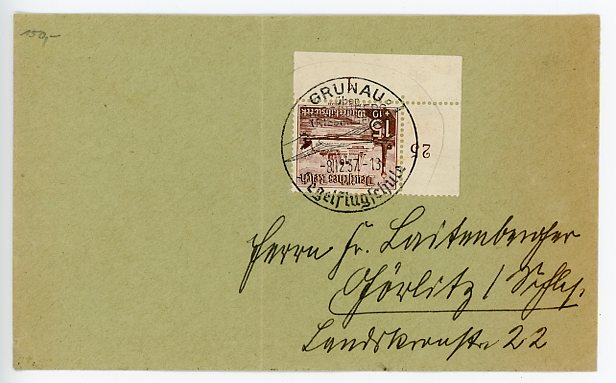 150,-
GRUNAU
über
-8.12.37.-13
Segelflugschule
15
+10
Winterhilfswerk
Deutsches Reich
25
Herrn Fr. Laitenberger
Görlitz / Schles.
Landskronstr. 22